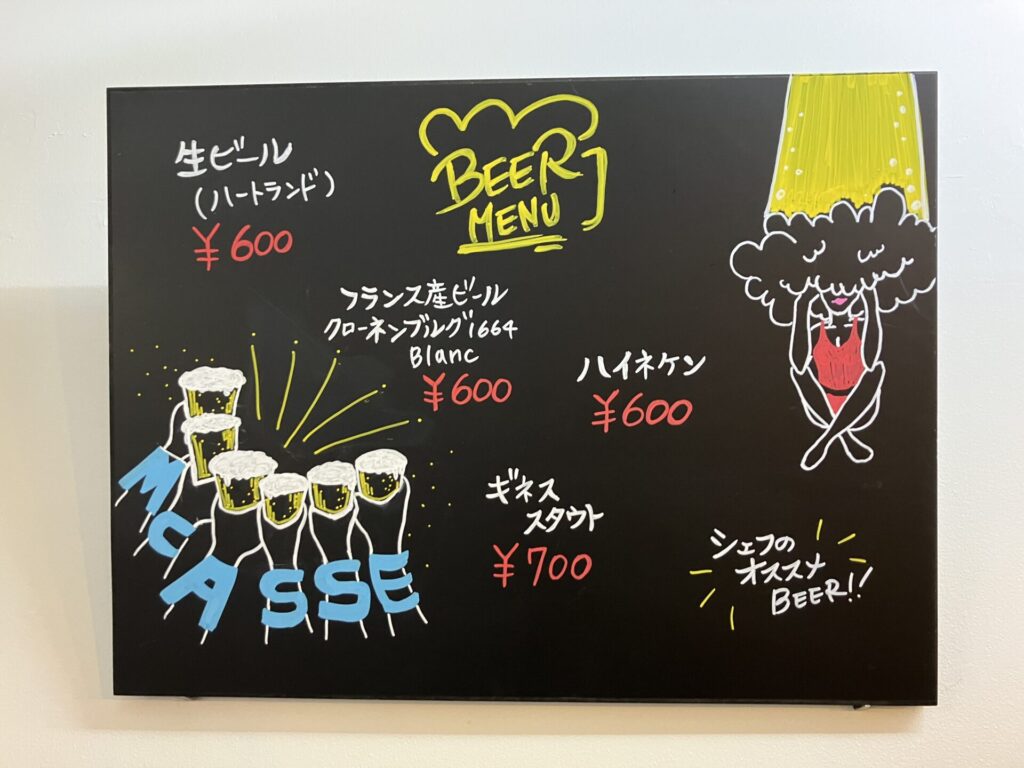 BEER
MENU
生ビール
(ハートランド)
¥600
フランス産ビール
クローネンブルグ1664
Blanc
¥600
ハイネケン
¥600
ギネス
スタウト
¥700
MCASSE
シェフの
オススメ
BEER!!